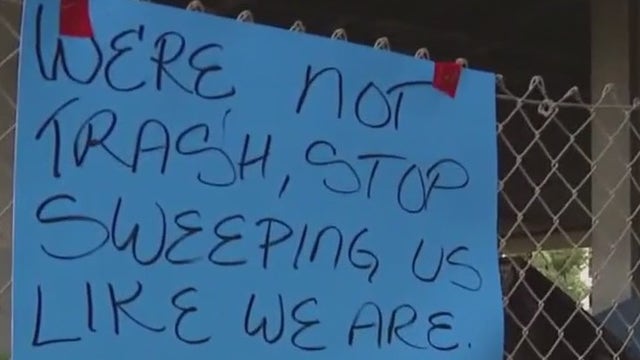 WE'RE NOT
TRASH, STOP
SWEEPING US
LIKE WE ARE.